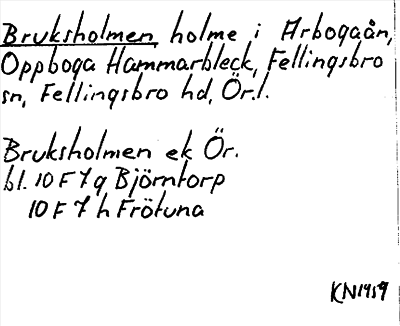 Bruksholmen, holme i Arbogaån,
Oppboga Hammarbleck, Fellingsbro
sn, Fellingsbro hd, Ör.l.
Bruksholmen ek Ör.
bl. 10 F 7 g Björntorp
10 F 7 h Frötuna
KN1959